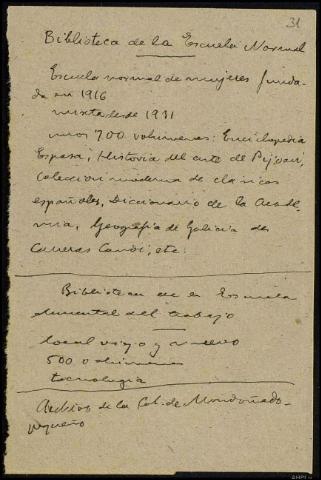 31
Biblioteca de la Escuela Normal
Escuela normal de mujeres funda-
da en 1916
mixta desde 1931
unos 700 volumenes: Enciclopedia
Espasa, Historia del arte de Pijoan,
Coleccion moderna de clásicos
españoles, Diccionario de la Acade-
mia, Geografia de Galicia de
Carreras Candi, etc.
Biblioteca de la Escuela
elemental del trabajo
local viejo y nuevo
500 volumenes
tecnologia
Archivo de la Cat. de Mondoñedo-
pequeño